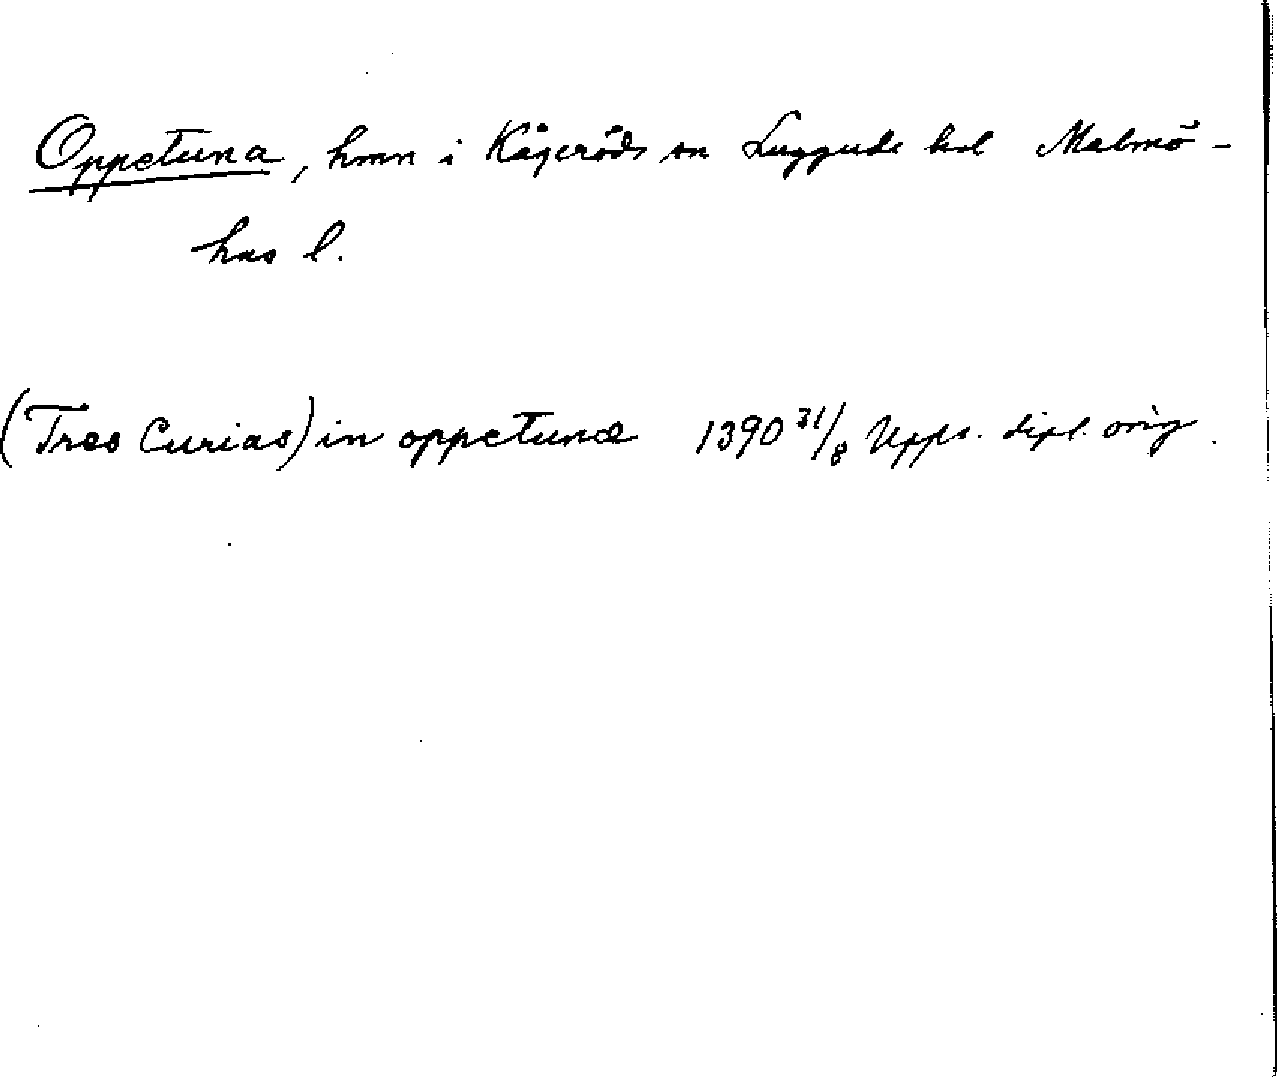 Oppetuna, hmn i Kågeröds sn Luggude hd Malmö-
hus l.
(Tres Curias) in oppetunæ 1390 31/8 Upps. dipl. orig.